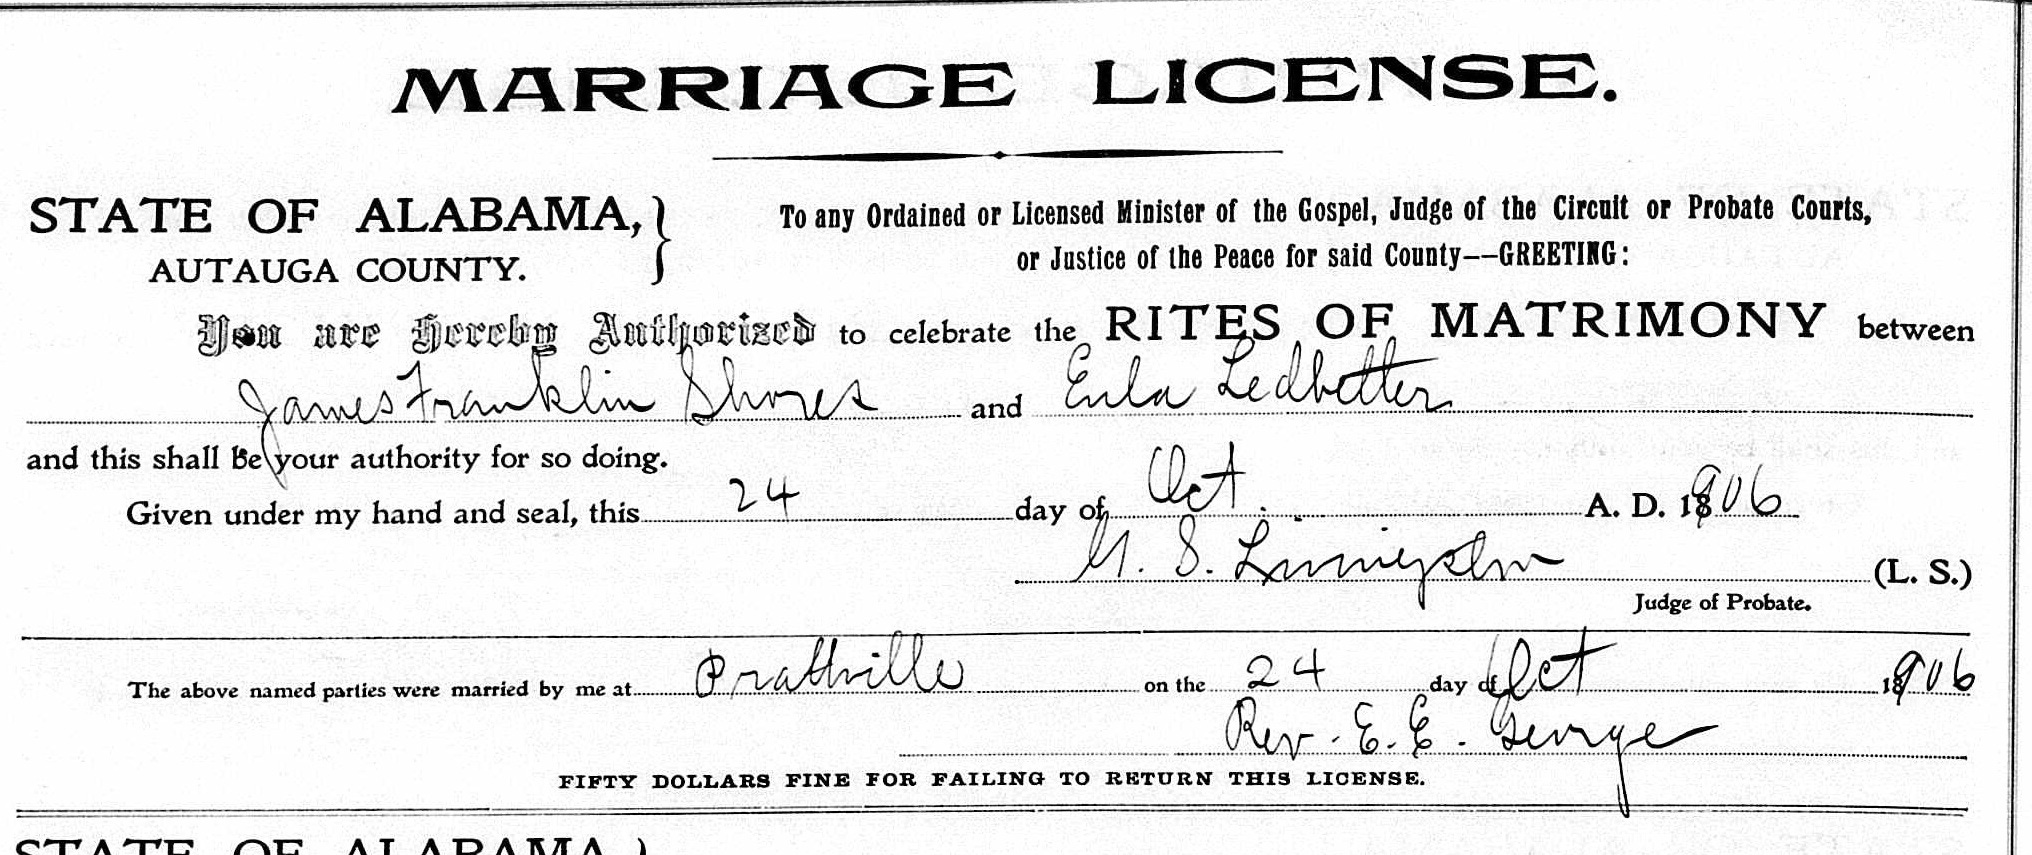 MARRIAGE LICENSE.
STATE OF ALABAMA,
AUTAUGA COUNTY.
To any Ordained or Licensed Minister of the Gospel, Judge of the Circuit or Probate Courts,
or Justice of the Peace for said County--GREETING:
You are Hereby Authorized to celebrate the RITES OF MATRIMONY between
James Franklin Shores and Eula Ledbetter
and this shall be your authority for so doing.
Given under my hand and seal, this 24 day of Oct. A. D. 1906
S. Livingston (L. S.)
Judge of Probate.
The above named parties were married by me at Prattville on the 24 day of Oct 1906
Rev. E. E. George
FIFTY DOLLARS FINE FOR FAILING TO RETURN THIS LICENSE.
STATE OF ALABAMA